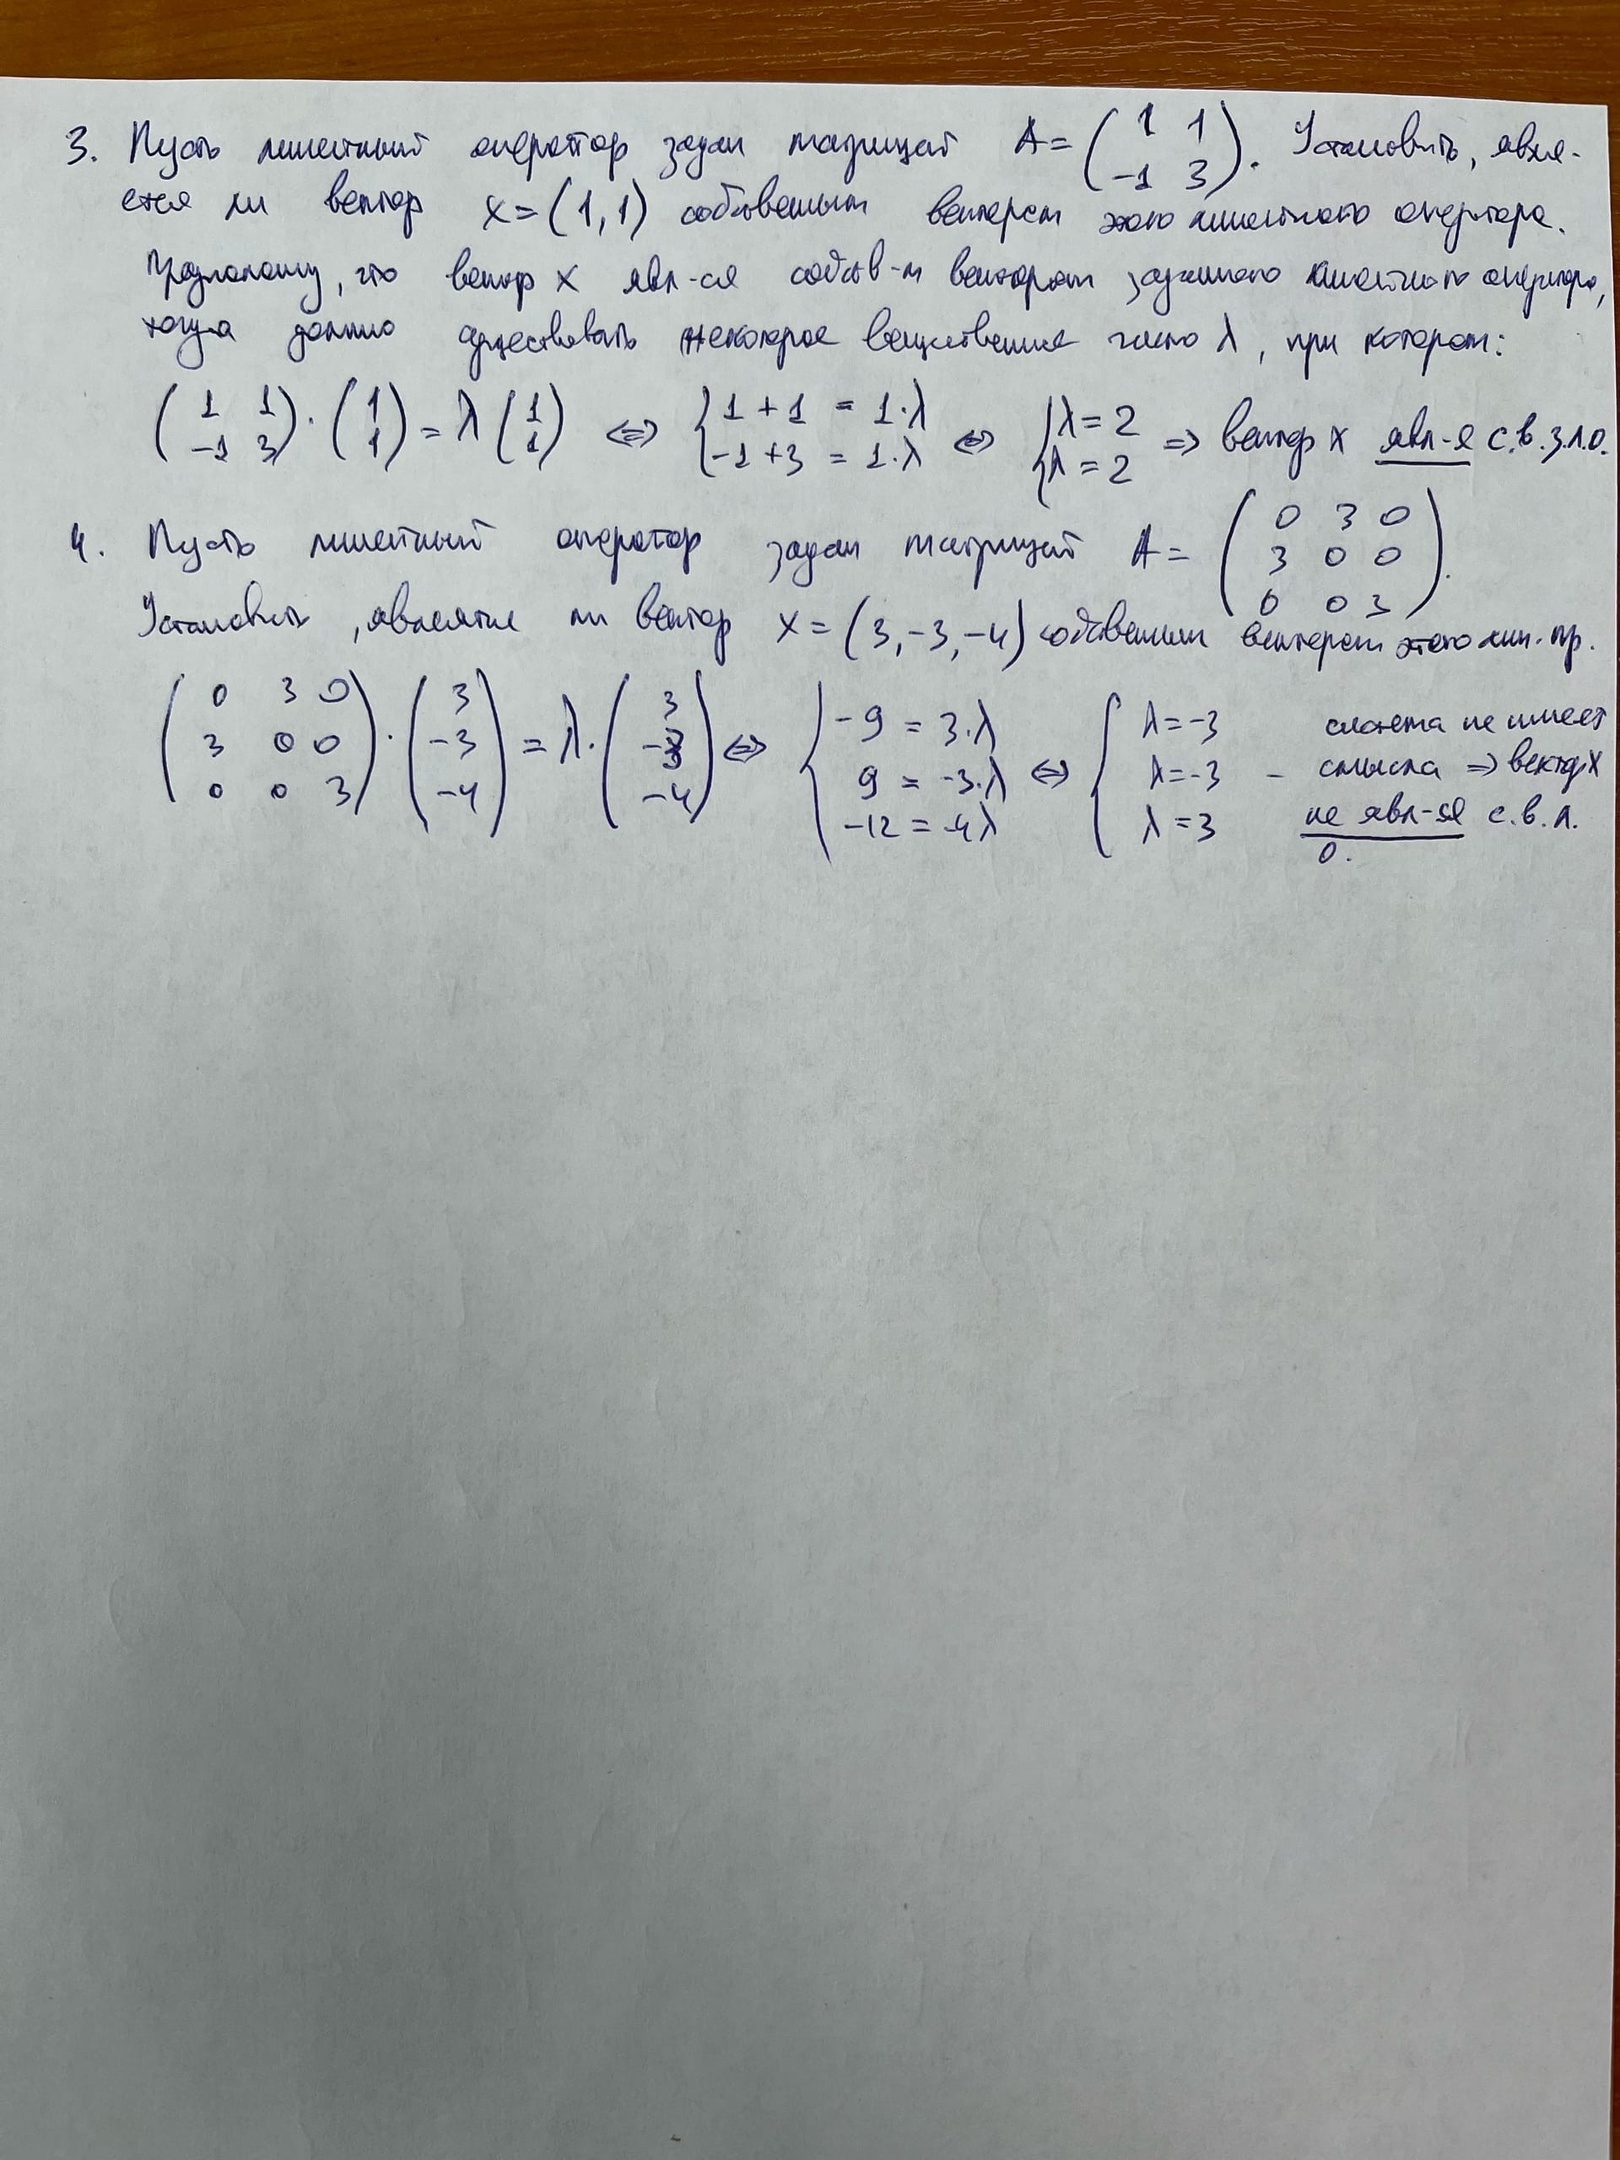 3. Пусть линейный оператор задан матрицей A = ( 1 1 ; -1 3 ). Установить, явля-
ется ли вектор x = (1, 1) собственным вектором этого линейного оператора.
Предположу, что вектор x явл-ся собств-м вектором заданного линейного оператора,
тогда должно существовать некоторое вещественное число λ, при котором:
( 1 1 ; -1 3 ) · ( 1 ; 1 ) = λ ( 1 ; 1 ) ⇔ { 1 + 1 = 1·λ ; -1 + 3 = 1·λ ⇔ { λ = 2 ; λ = 2 ⇒ вектор x явл-я с.в.з.л.о.
4. Пусть линейный оператор задан матрицей A = ( 0 3 0 ; 3 0 0 ; 0 0 3 ).
Установить, является ли вектор x = (3, -3, -4) собственным вектором этого лин. пр.
( 0 3 0 ; 3 0 0 ; 0 0 3 ) · ( 3 ; -3 ; -4 ) = λ · ( 3 ; -3 ; -4 ) ⇔ { -9 = 3·λ ; 9 = -3·λ ; -12 = -4λ ⇔ { λ = -3 ; λ = -3 ; λ = 3 - не имеет
смысла ⇒ вектор x
не явл-ся с.в.л.
о.